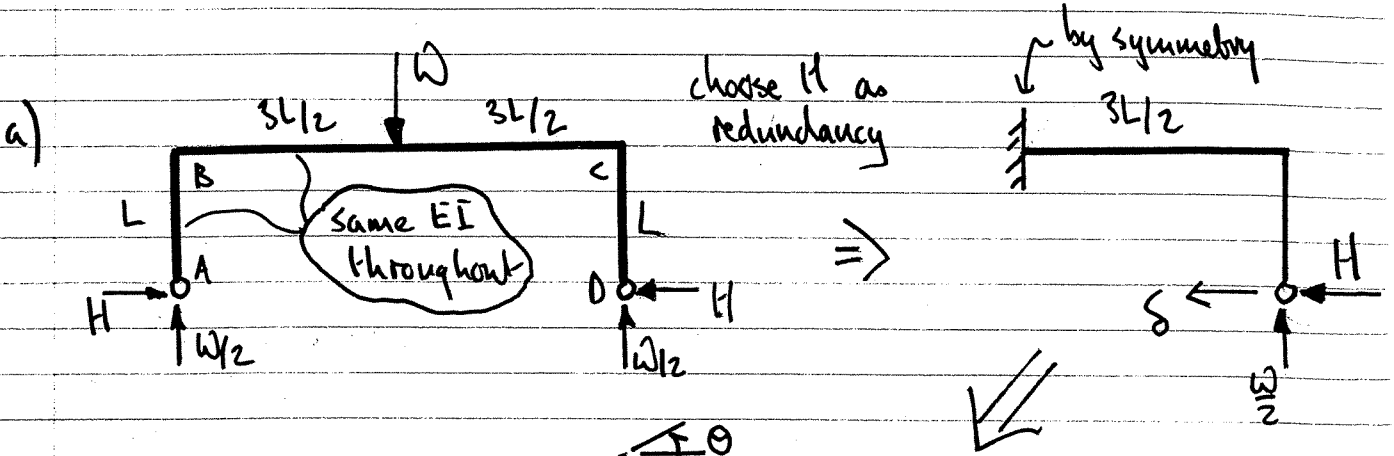 a)
W
3L/2 3L/2
B C
L L
same EI
throughout
A D
H H
W/2 W/2
choose H as
redundancy
⇒
by symmetry
3L/2
δ H
W/2
θ